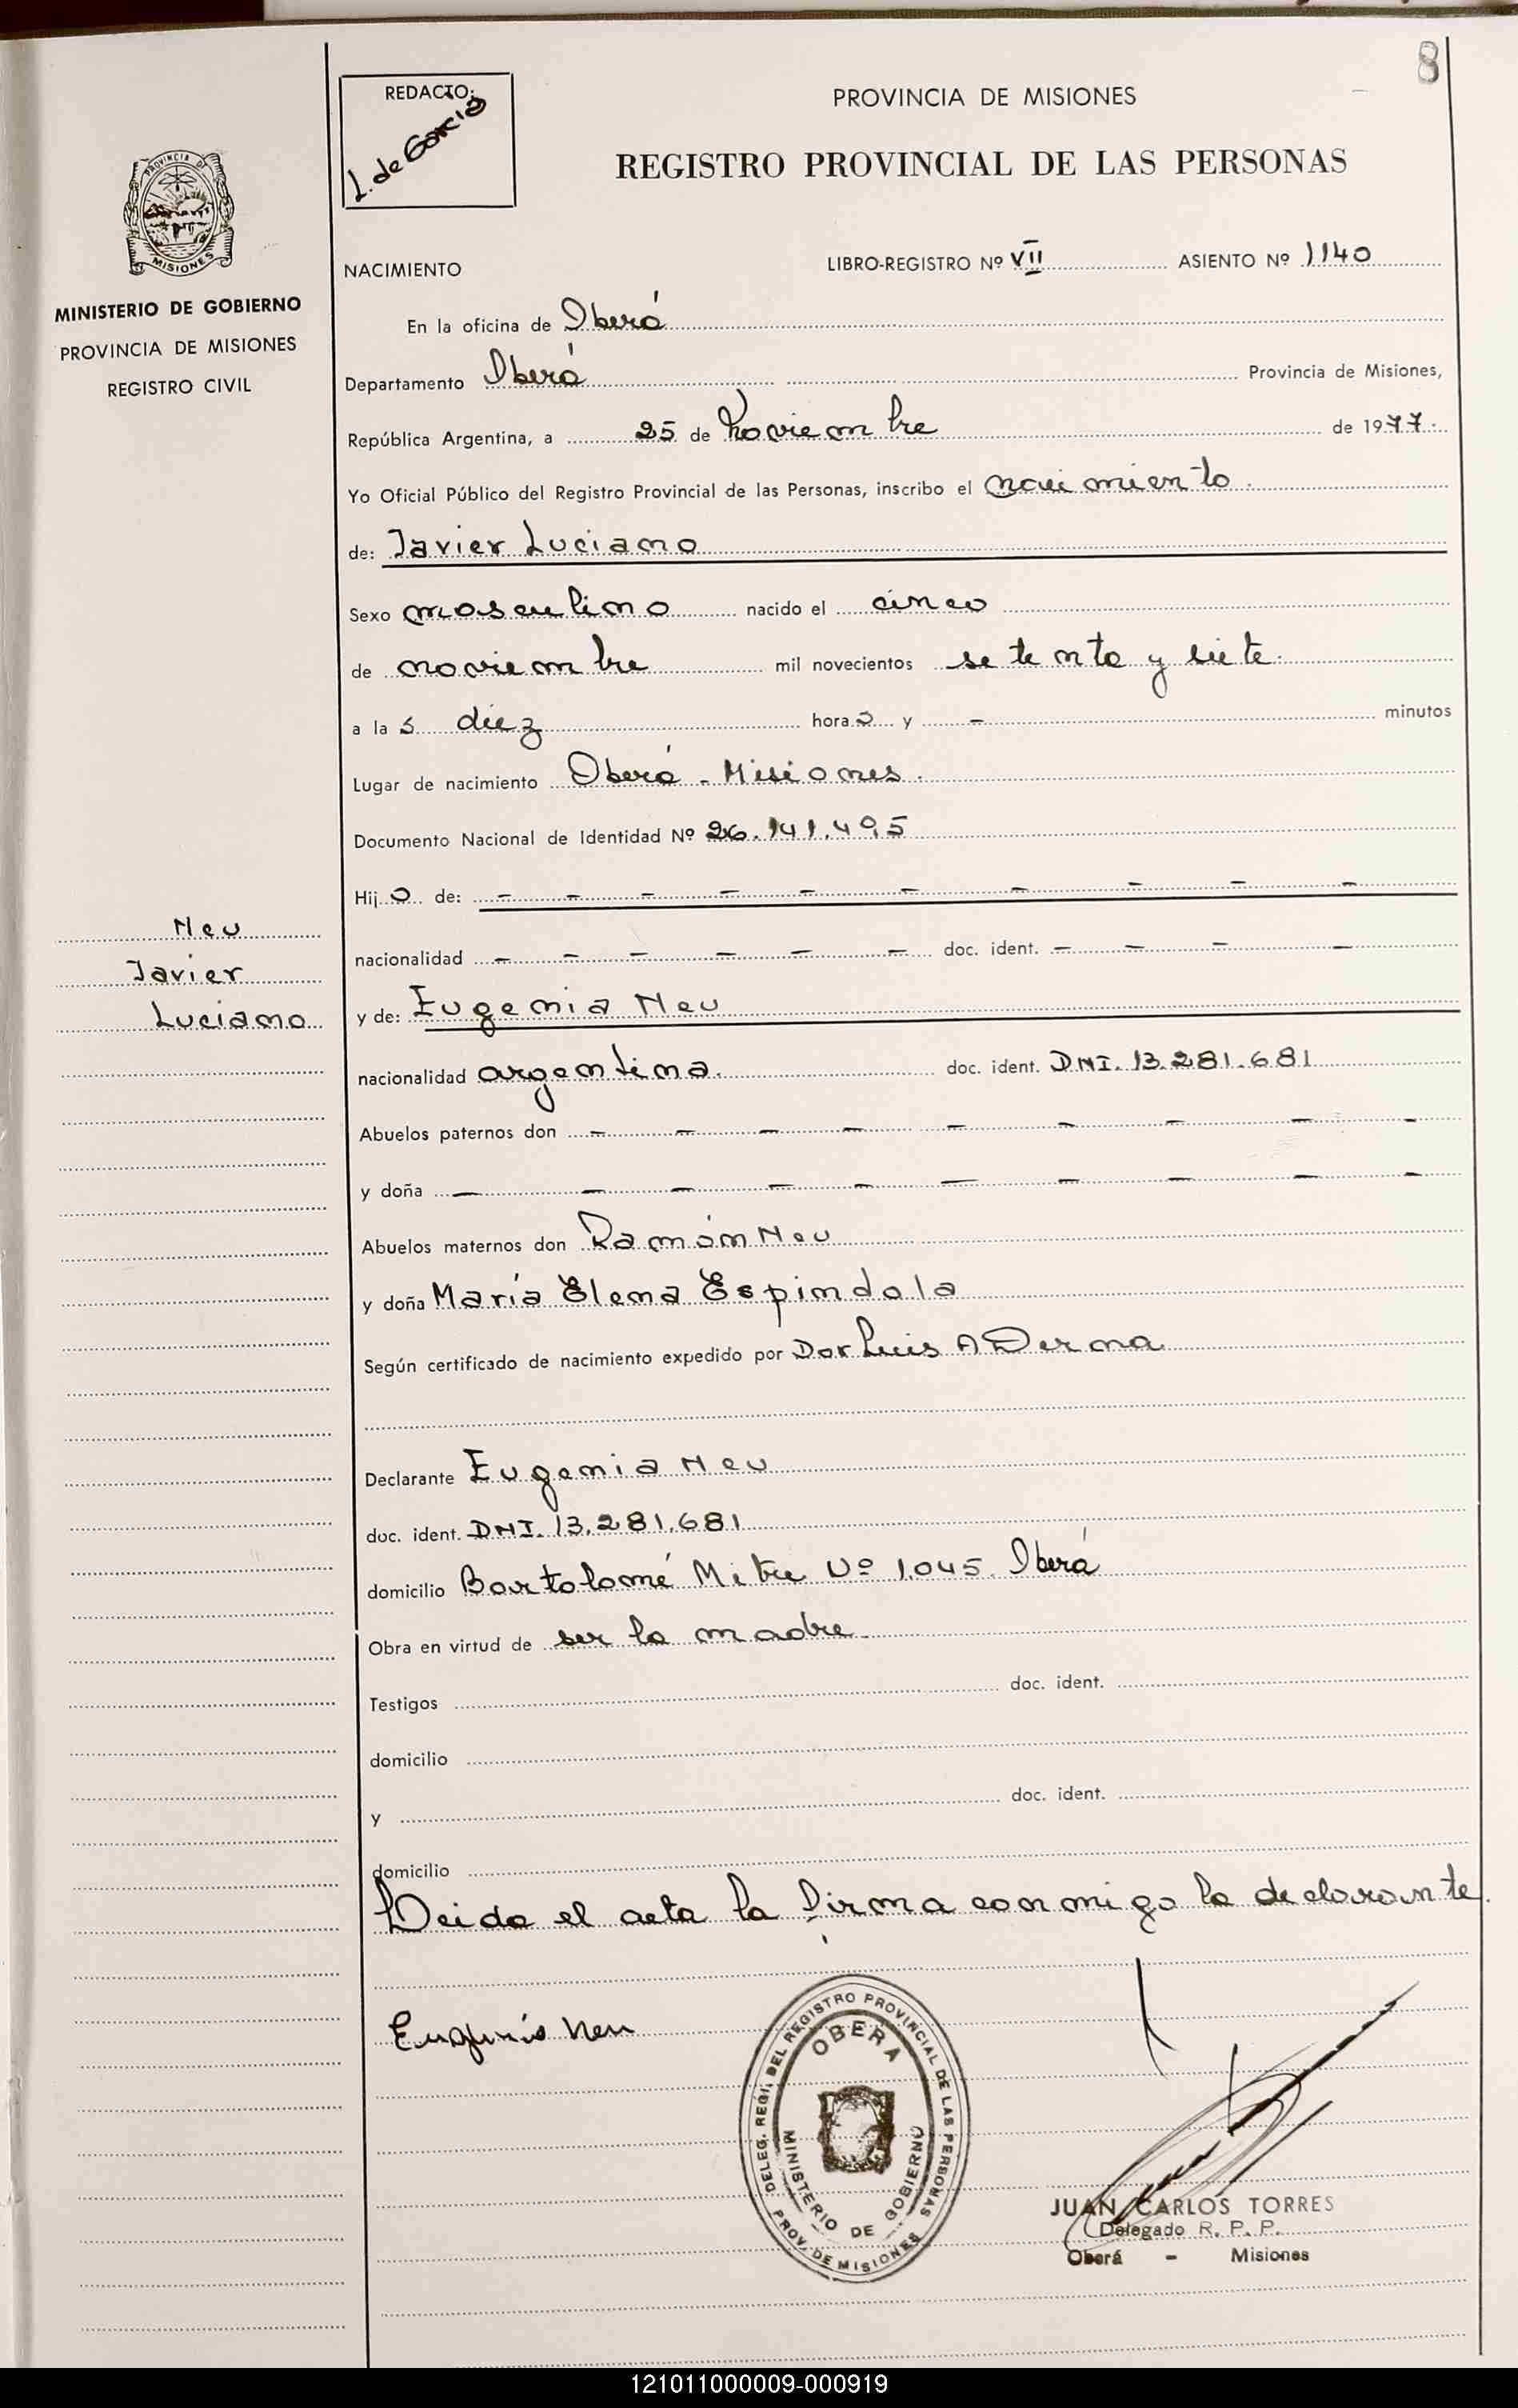 8
REDACTO:
L. de Garcia
PROVINCIA DE MISIONES
REGISTRO PROVINCIAL DE LAS PERSONAS
PROVINCIA DE
MISIONES
MINISTERIO DE GOBIERNO
PROVINCIA DE MISIONES
REGISTRO CIVIL
NACIMIENTO LIBRO-REGISTRO Nº VII ASIENTO Nº 1140
En la oficina de Oberá
Departamento Oberá Provincia de Misiones,
República Argentina, a 25 de Noviembre de 1977.
Yo Oficial Público del Registro Provincial de las Personas, inscribo el nacimiento.
de: Javier Luciano
Sexo masculino nacido el cinco
de noviembre mil novecientos setenta y siete.
a la s diez hora s y - minutos
Lugar de nacimiento Oberá - Misiones.
Documento Nacional de Identidad Nº 26.141.495
Hij o de: - - - - - - - - - -
Neu
Javier
Luciano
nacionalidad - - - - - - doc. ident. - - - -
y de: Eugenia Neu
nacionalidad argentina. doc. ident. DNI. 13.281.681
Abuelos paternos don - - - - - - - - -
y doña - - - - - - - - - -
Abuelos maternos don Ramón Neu
y doña María Elena Espindola
Según certificado de nacimiento expedido por Dor Luis A Derna
Declarante Eugenia Neu
doc. ident. DNI. 13.281.681
domicilio Bartolomé Mitre Nº 1.045. Oberá
Obra en virtud de ser la madre
Testigos doc. ident.
domicilio
y doc. ident.
domicilio
Leida el acta la firma conmigo la declarante.
Eugenia Neu
DELEG. REGI. DEL REGISTRO PROVINCIAL DE LAS PERSONAS
OBERA
MINISTERIO DE GOBIERNO
PROV. DE MISIONES
JUAN CARLOS TORRES
Delegado R. P. P.
Oberá - Misiones
121011000009-000919